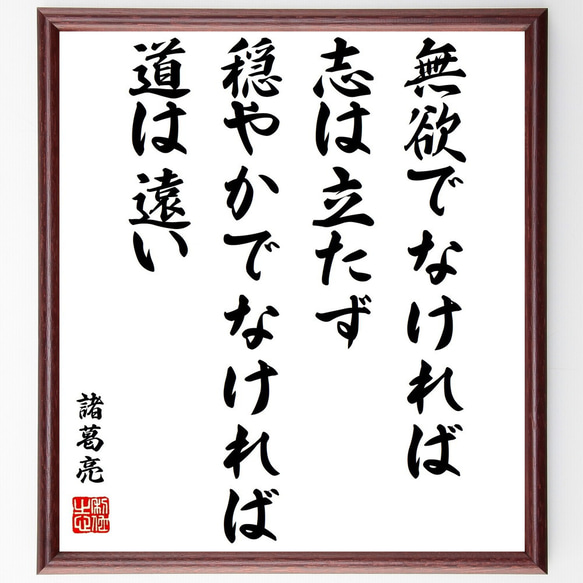 無欲でなければ
志は立たず
穏やかでなければ
道は遠い
諸葛亮